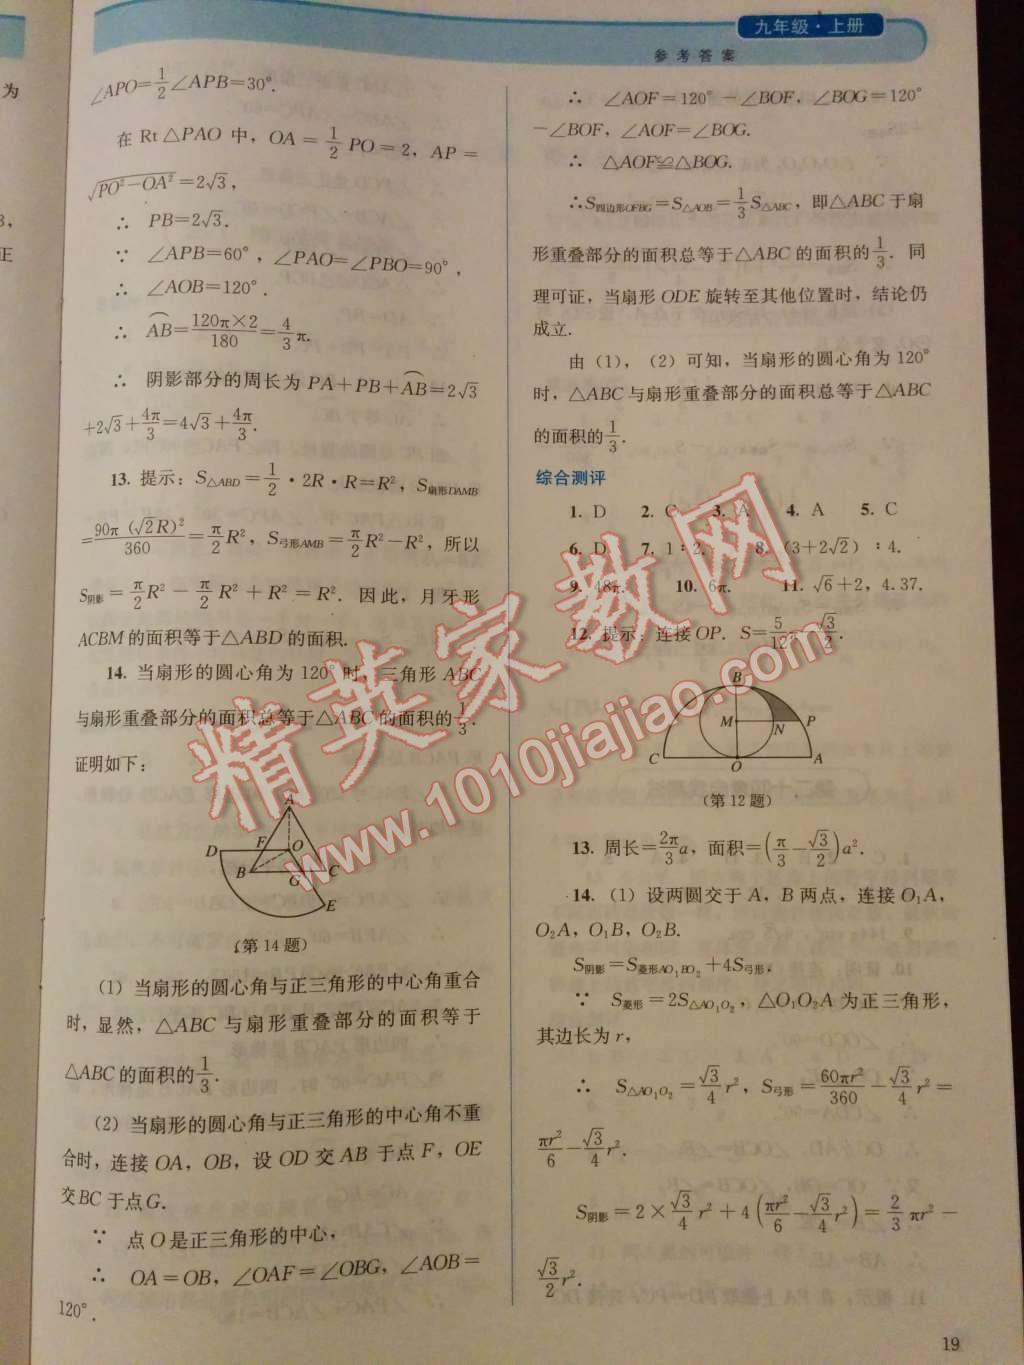 九年级·上册
参考答案
为
正
∠APO=1/2∠APB=30°.
在 Rt△PAO 中，OA=1/2PO=2，AP=
√(PO²-OA²)=2√3，
∴ PB=2√3.
∵ ∠APB=60°，∠PAO=∠PBO=90°，
∴ ∠AOB=120°.
∴ ⌒AB=120π×2/180=4/3π.
∴ 阴影部分的周长为 PA+PB+⌒AB=2√3
+2√3+4π/3=4√3+4π/3.
13. 提示：S△ABD=1/2·2R·R=R²，S扇形DAMB
=90π(√2R)²/360=π/2R²，S弓形AMB=π/2R²-R²，所以
S阴影=π/2R²-π/2R²+R²=R². 因此，月牙形
ACBM的面积等于△ABD的面积.
14. 当扇形的圆心角为120°时，三角形ABC
与扇形重叠部分的面积总等于△ABC的面积的1/3.
证明如下：
A
D F O
B G C
E
（第14题）
(1) 当扇形的圆心角与正三角形的中心角重合
时，显然，△ABC与扇形重叠部分的面积等于
△ABC的面积的1/3.
(2) 当扇形的圆心角与正三角形的中心角不重
合时，连接OA，OB，设OD交AB于点F，OE
交BC于点G.
∵ 点O是正三角形的中心，
∴ OA=OB，∠OAF=∠OBG，∠AOB=
120°.
∴ ∠AOF=120°-∠BOF，∠BOG=120°
-∠BOF，∠AOF=∠BOG.
∴ △AOF≌△BOG.
∴S四边形OFBG=S△AOB=1/3S△ABC，即△ABC于扇
形重叠部分的面积总等于△ABC的面积的1/3. 同
理可证，当扇形ODE旋转至其他位置时，结论仍
成立.
由(1)，(2)可知，当扇形的圆心角为120°
时，△ABC与扇形重叠部分的面积总等于△ABC
的面积的1/3.
综合测评
1. D 2. C 3. A 4. A 5. C
6. D 7. 1∶2. 8. (3+2√2)∶4.
9. 48π. 10. 6π. 11. √6+2，4.37.
12. 提示：连接OP. S=5/12π-√3/2.
B
M N P
C O A
（第12题）
13. 周长=2π/3a，面积=(π/3-√3/2)a².
14. (1) 设两圆交于A，B两点，连接O₁A，
O₂A，O₁B，O₂B.
S阴影=S菱形AO₁BO₂+4S弓形.
∵ S菱形=2S△AO₁O₂，△O₁O₂A为正三角形，
其边长为r，
∴ S△AO₁O₂=√3/4r²，S弓形=60πr²/360-√3/4r²=
πr²/6-√3/4r².
S阴影=2×√3/4r²+4(πr²/6-√3/4r²)=2/3πr²-
√3/2r².
19
精英家教网
www.1010jiajiao.com